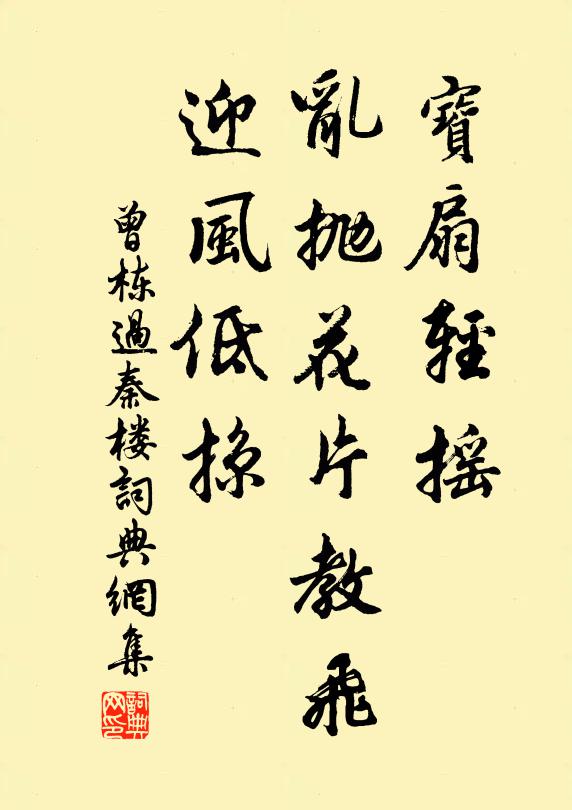 寶扇輕摇
亂抛花片教飛
迎風低掠
曾栋過秦楼詞典網集
詞典
网印